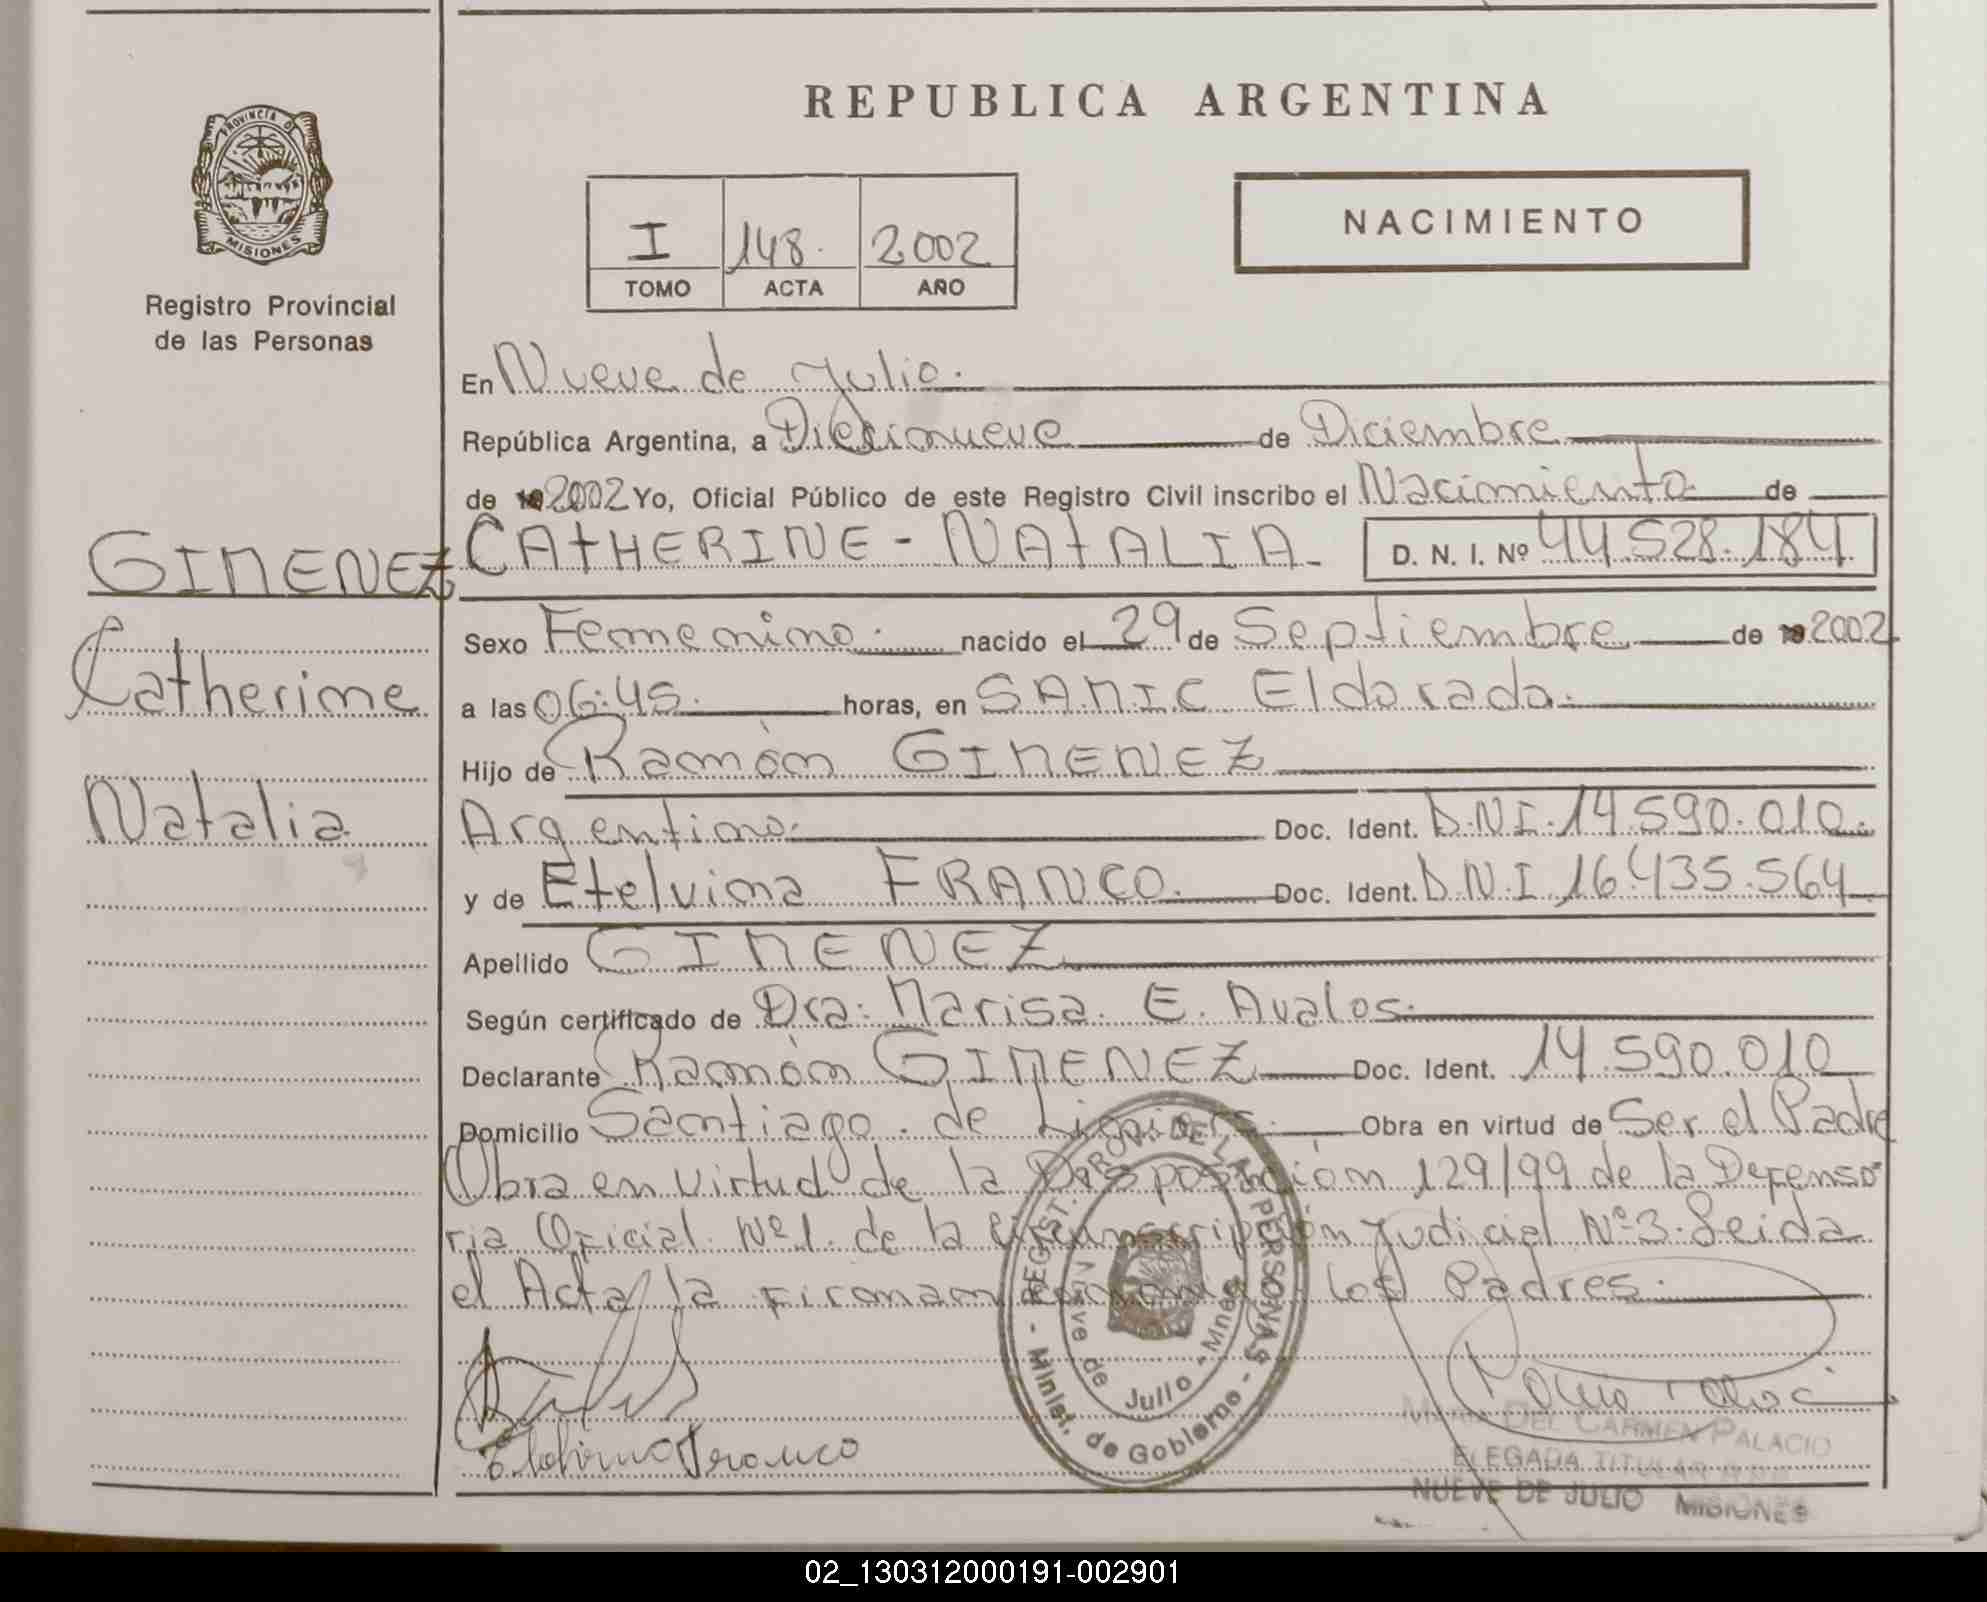 REPUBLICA ARGENTINA
PROVINCIA DE
MISIONES
Registro Provincial
de las Personas
I 148. 2002
TOMO ACTA AÑO
NACIMIENTO
En Nueve de Julio.
República Argentina, a Diecinueve de Diciembre
de 19 2002 Yo, Oficial Público de este Registro Civil inscribo el Nacimiento de
GIMENEZ CATHERINE - NATALIA D. N. I. Nº 44.528.184
Catherine
Natalia
Sexo Femenino. nacido el 29 de Septiembre de 19 2002
a las 06:45. horas, en SAMIC Eldorado.
Hijo de Ramón GIMENEZ
Argentino. Doc. Ident. D.N.I. 14.590.010.
y de Etelvina FRANCO. Doc. Ident. D.N.I. 16.435.564
Apellido GIMENEZ
Según certificado de Dra: Marisa. E. Avalos.
Declarante Ramón GIMENEZ Doc. Ident. 14.590.010
Domicilio Santiago de Liniers. Obra en virtud de Ser el Padre
Obra en virtud de la Disposición 129/99 de la Defenso
ria Oficial Nº1. de la Circunscripción Judicial Nº3. Leida
el Acta la firman los Padres.
REGIST. PROV. DE LAS PERSONAS
- Minist. de Gobierno -
Nueve de Julio - Mnes
Etelvina Franco
MARIA DEL CARMEN PALACIO
ELEGADA TITULAR
NUEVE DE JULIO MISIONES
02_130312000191-002901